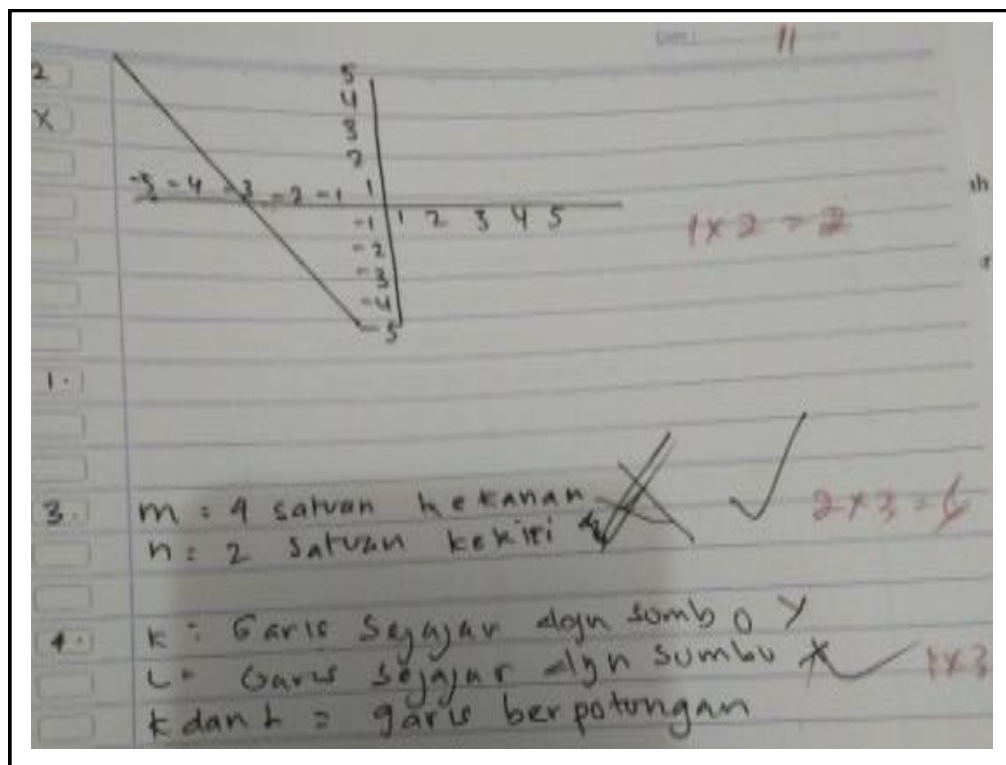 11
2
X
5
4
3
2
1
-5 -4 -3 -2 -1
1 2 3 4 5
-1
-2
-3
-4
-5
1 x 2 = 2
1.
3. m = 4 satuan kekanan
2 x 3 = 6
n = 2 satuan kekiri
4. k = Garis Sejajar dgn sumbo y
L = Garis sejajar dgn sumbu x
1x3
k dan L = garis berpotongan